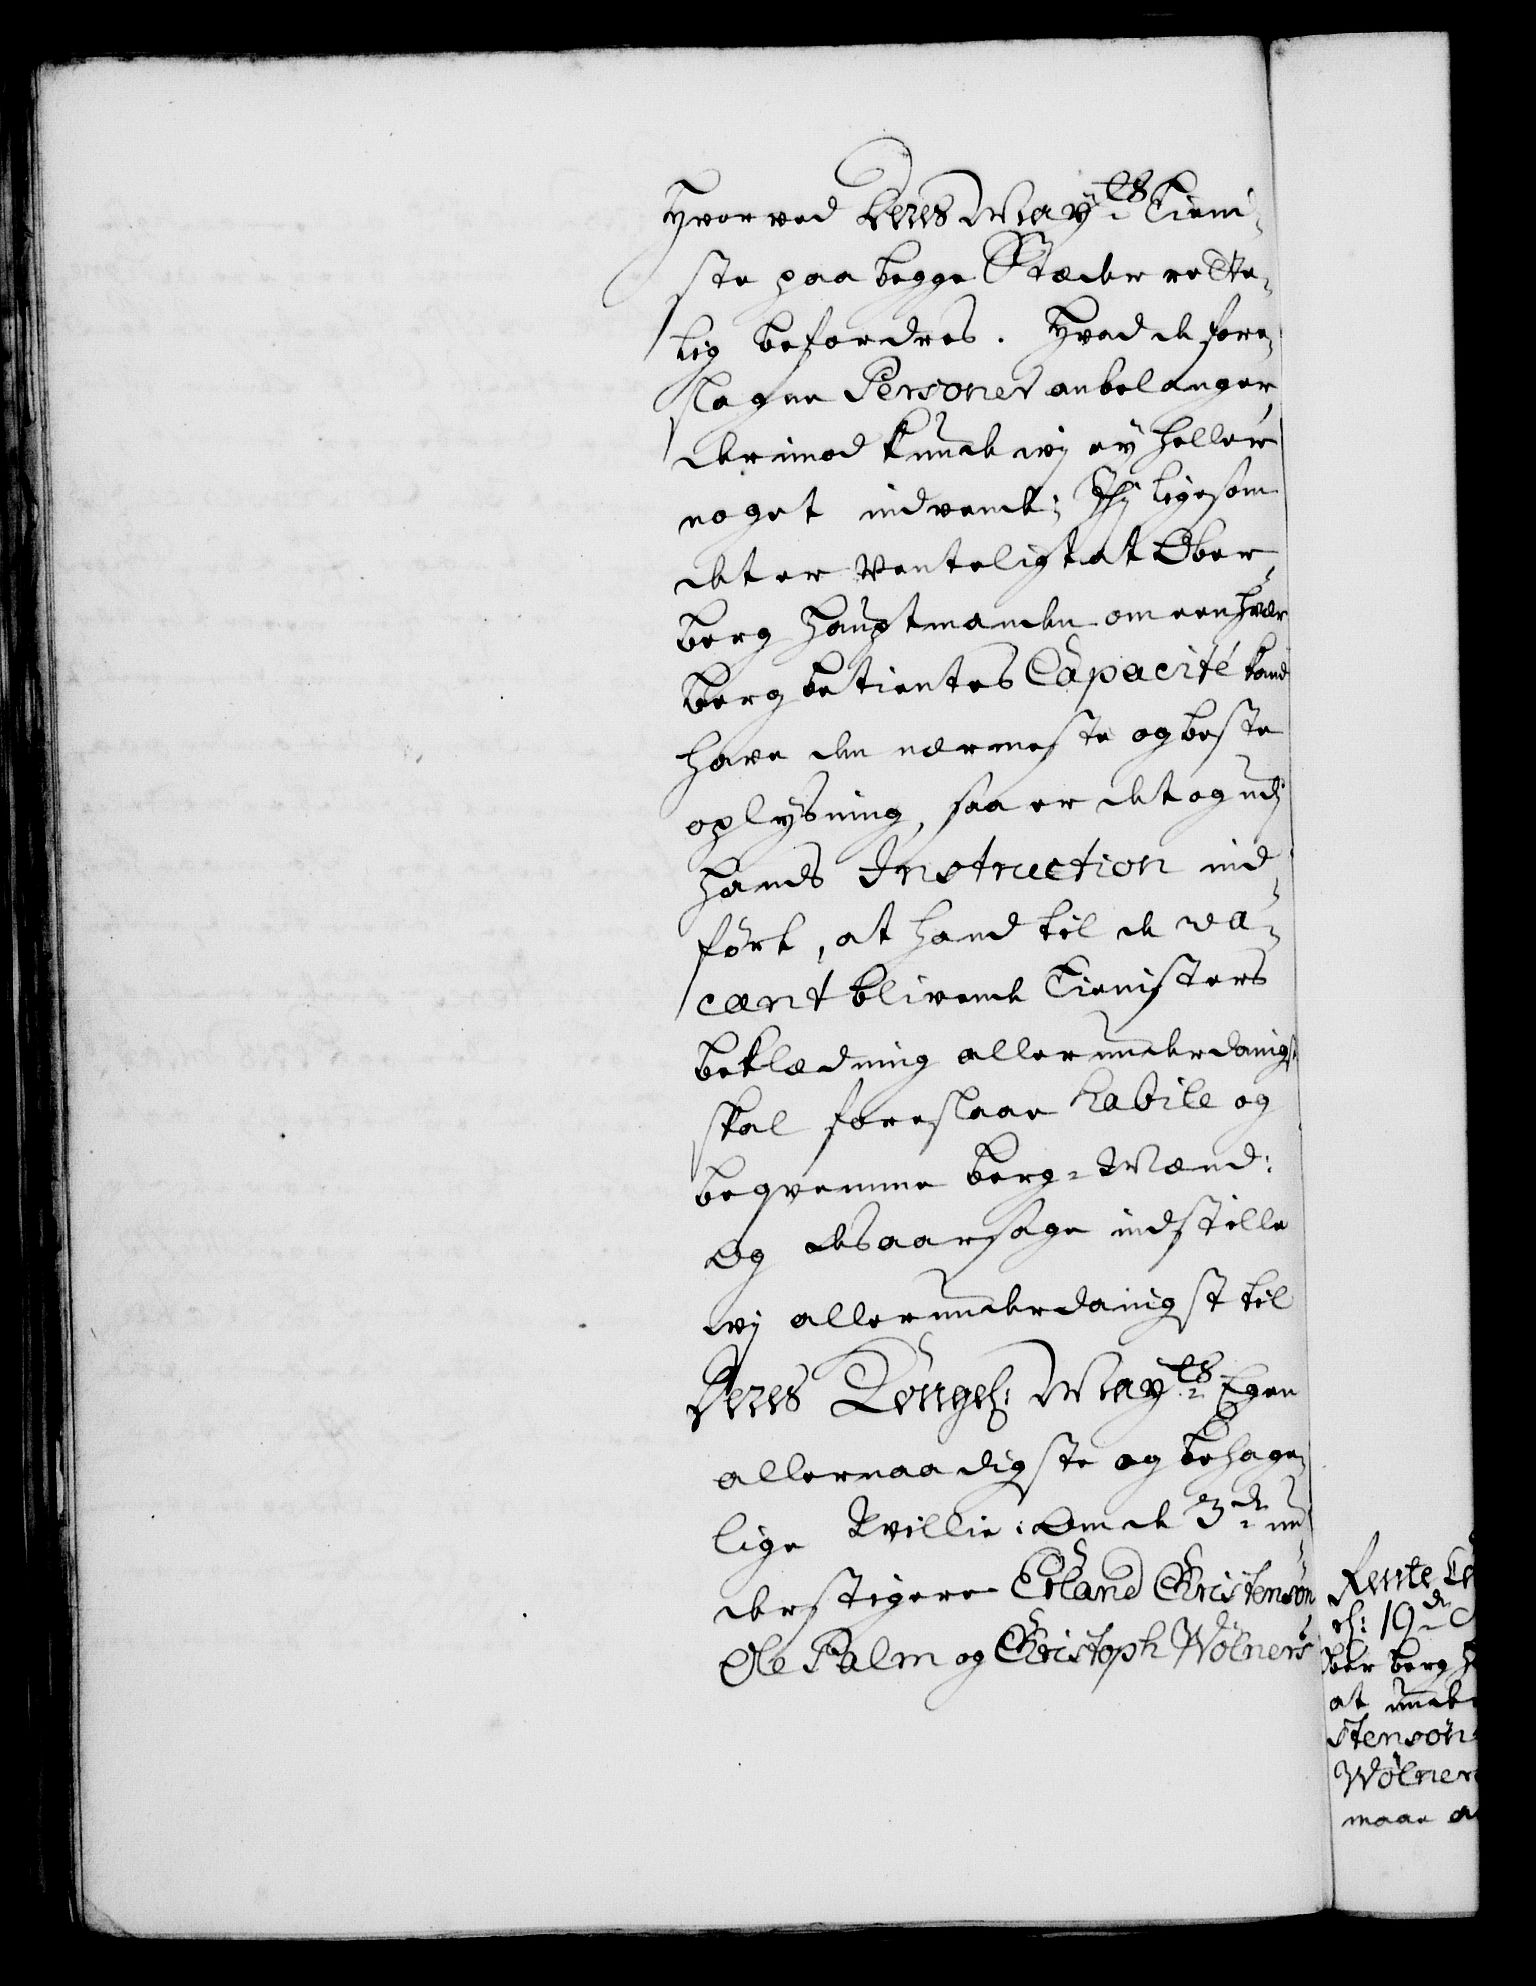 Hvorved Deres May:ts Tieni-
ste paa begge Stæder rette-
lig befordres. Hvad de fore-
slagne Personer anbelanger,
derimod kunde wj ey heller
noget indvende; Thj ligesom
det er Venteligt at Ober-
berg Hauptmanden om een hver
berg betientes Capacité kand
have den nærmeste og beste
oplysning, saa er det og udj
hands Instruction ind-
fört, at hand til de va-
cant blivende Tienisters
beklædning allerunderdanigst
skal foreslaae habile og
beqvemme berg-Mænd:
Og desaarsage indstille
wj allerunderdanigst til
Deres Kongel: May:ts Egen
allernaadigste og behage-
lige Villie: Om de 3de un-
derstigere Erland Christensön
Ole Palm og Christoph Wölners
Rente
el: 19de
Ober berg
at unde
stensön
Wölner
maae